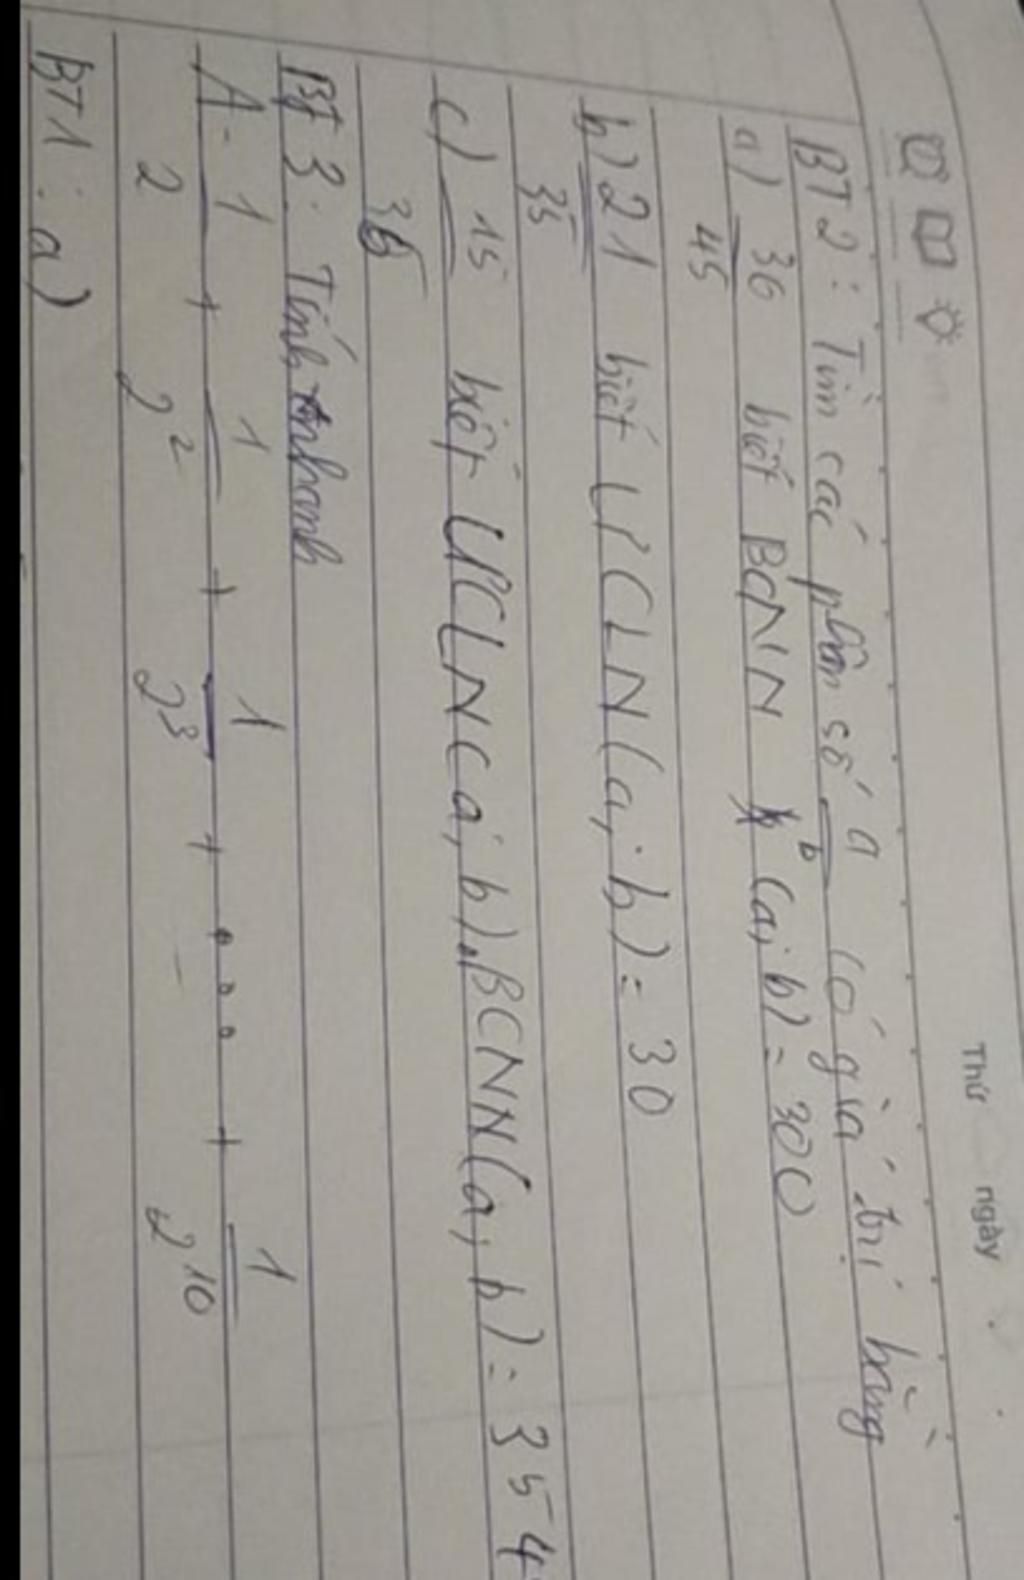 Thứ ngày
BT 2: Tìm các phân số a/b có giá trị bằng
a) 36/45 biết BCNN (a; b) = 300
b) 21/35 biết ƯCLN(a; b) = 30
c) 15/35 biết ƯCLN(a; b).BCNN(a; b) = 354
Bt 3: Tính nhanh
A = 1/2 + 1/2² + 1/2³ + ... + 1/2¹⁰
BT1: a)